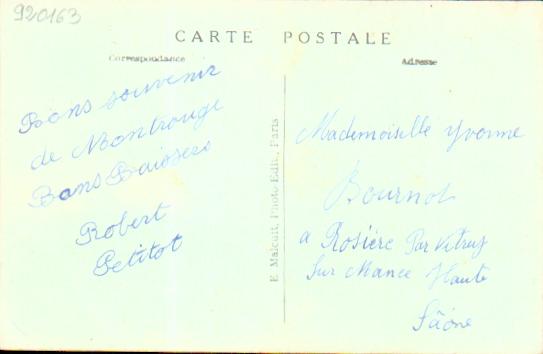 920163
CARTE POSTALE
Correspondance
Adresse
Bons souvenir
de Montrouge
Bons Baissers
Robert
Petitot
E. Malcuit, Photo-Edit., Paris
Mademoiselle Yvonne
Bournot
a Rosière Par Vitrey
Sur Mance Haute
Sâone